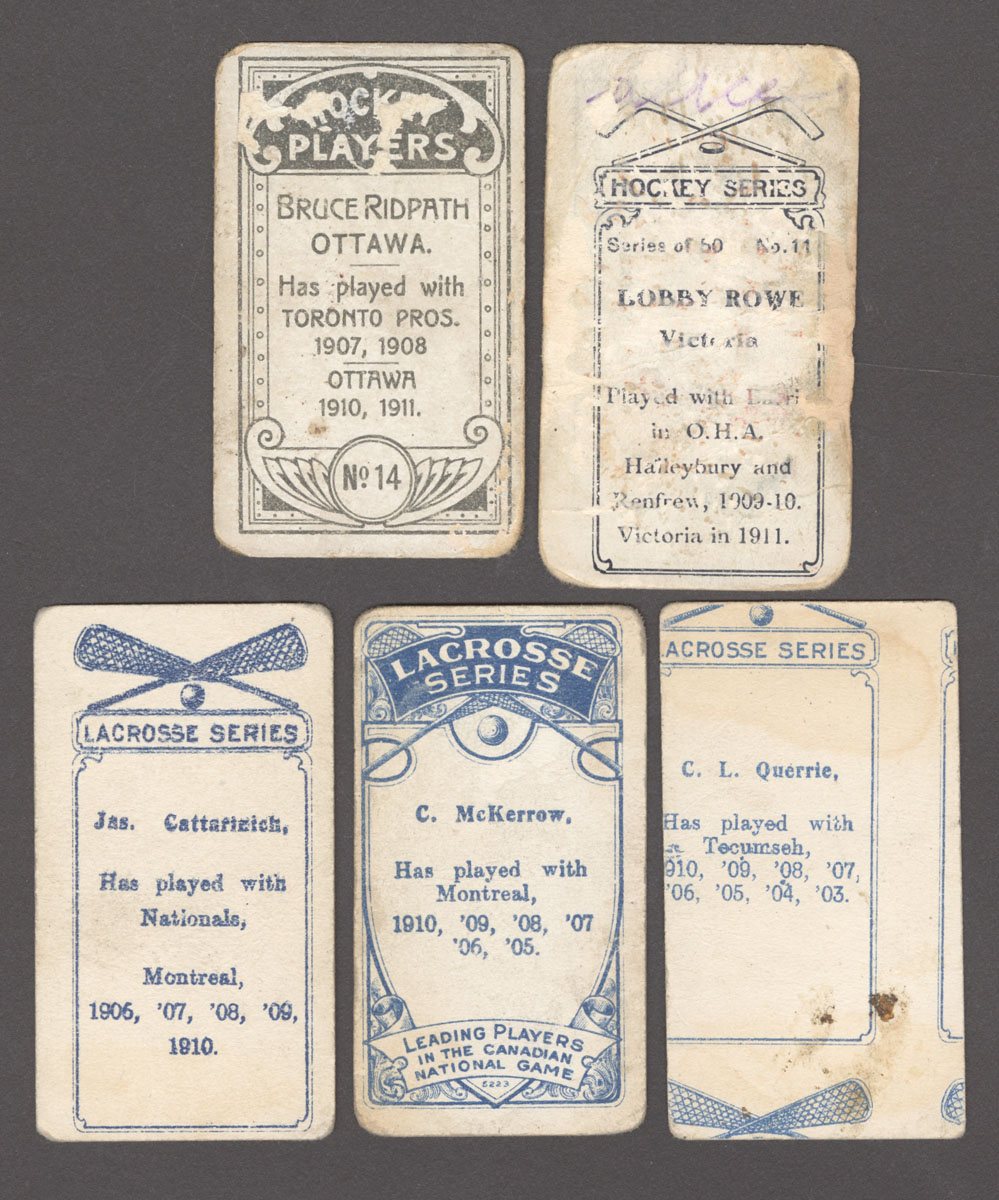 HOCK
PLAYERS
BRUCE RIDPATH
OTTAWA.
Has played with
TORONTO PROS.
1907, 1908
OTTAWA
1910, 1911.
No 14
HOCKEY SERIES
Series of 50 No. 11
LOBBY ROWE
Victoria
Played with
in O.H.A.
Haileybury and
Renfrew, 1909-10.
Victoria in 1911.
LACROSSE SERIES
Jas. Cattarinich,
Has played with
Nationals,
Montreal,
1906, '07, '08, '09,
1910.
LACROSSE
SERIES
C. McKerrow,
Has played with
Montreal,
1910, '09, '08, '07
'06, '05.
LEADING PLAYERS
IN THE CANADIAN
NATIONAL GAME
5223
ACROSSE SERIES
C. L. Querrie,
Has played with
Tecumseh,
910, '09, '08, '07,
'06, '05, '04, '03.